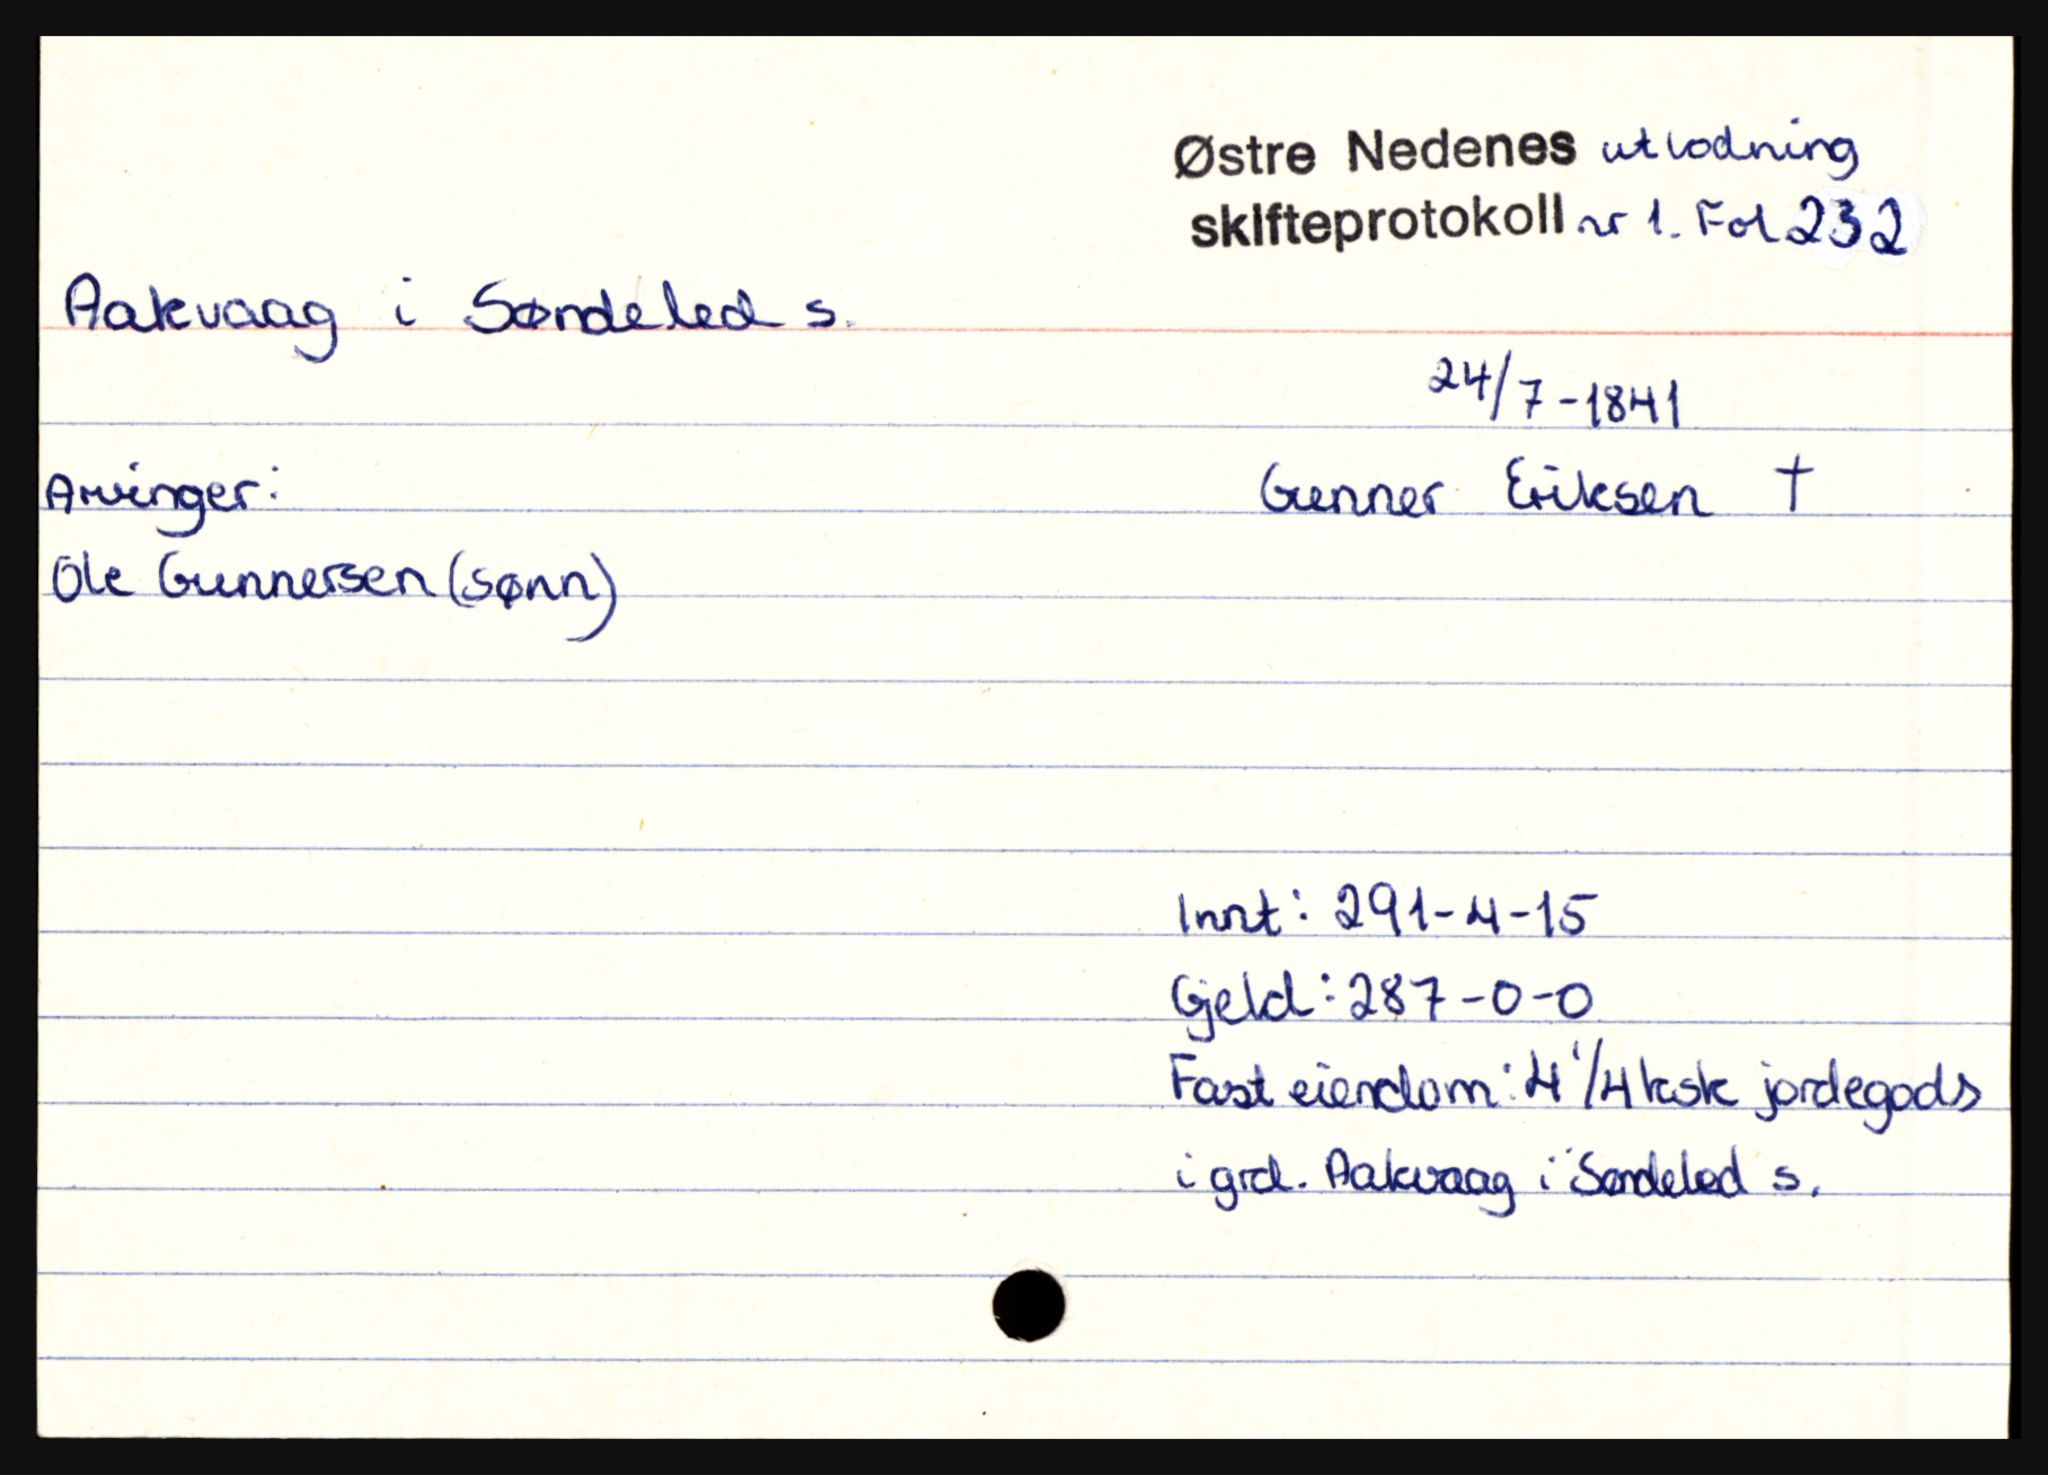 Østre Nedenes utlodning
skifteprotokoll nr 1. Fol 232
Aakvaag i Søndeled s.
24/7-1841
Arvinger:
Gunner Eriksen †
Ole Gunnersen (sønn)
Innt: 291-4-15
Gjeld: 287-0-0
Fast eiendom: 4 1/4 ksk jordegods
i grd. Aakvaag i Søndeled s.